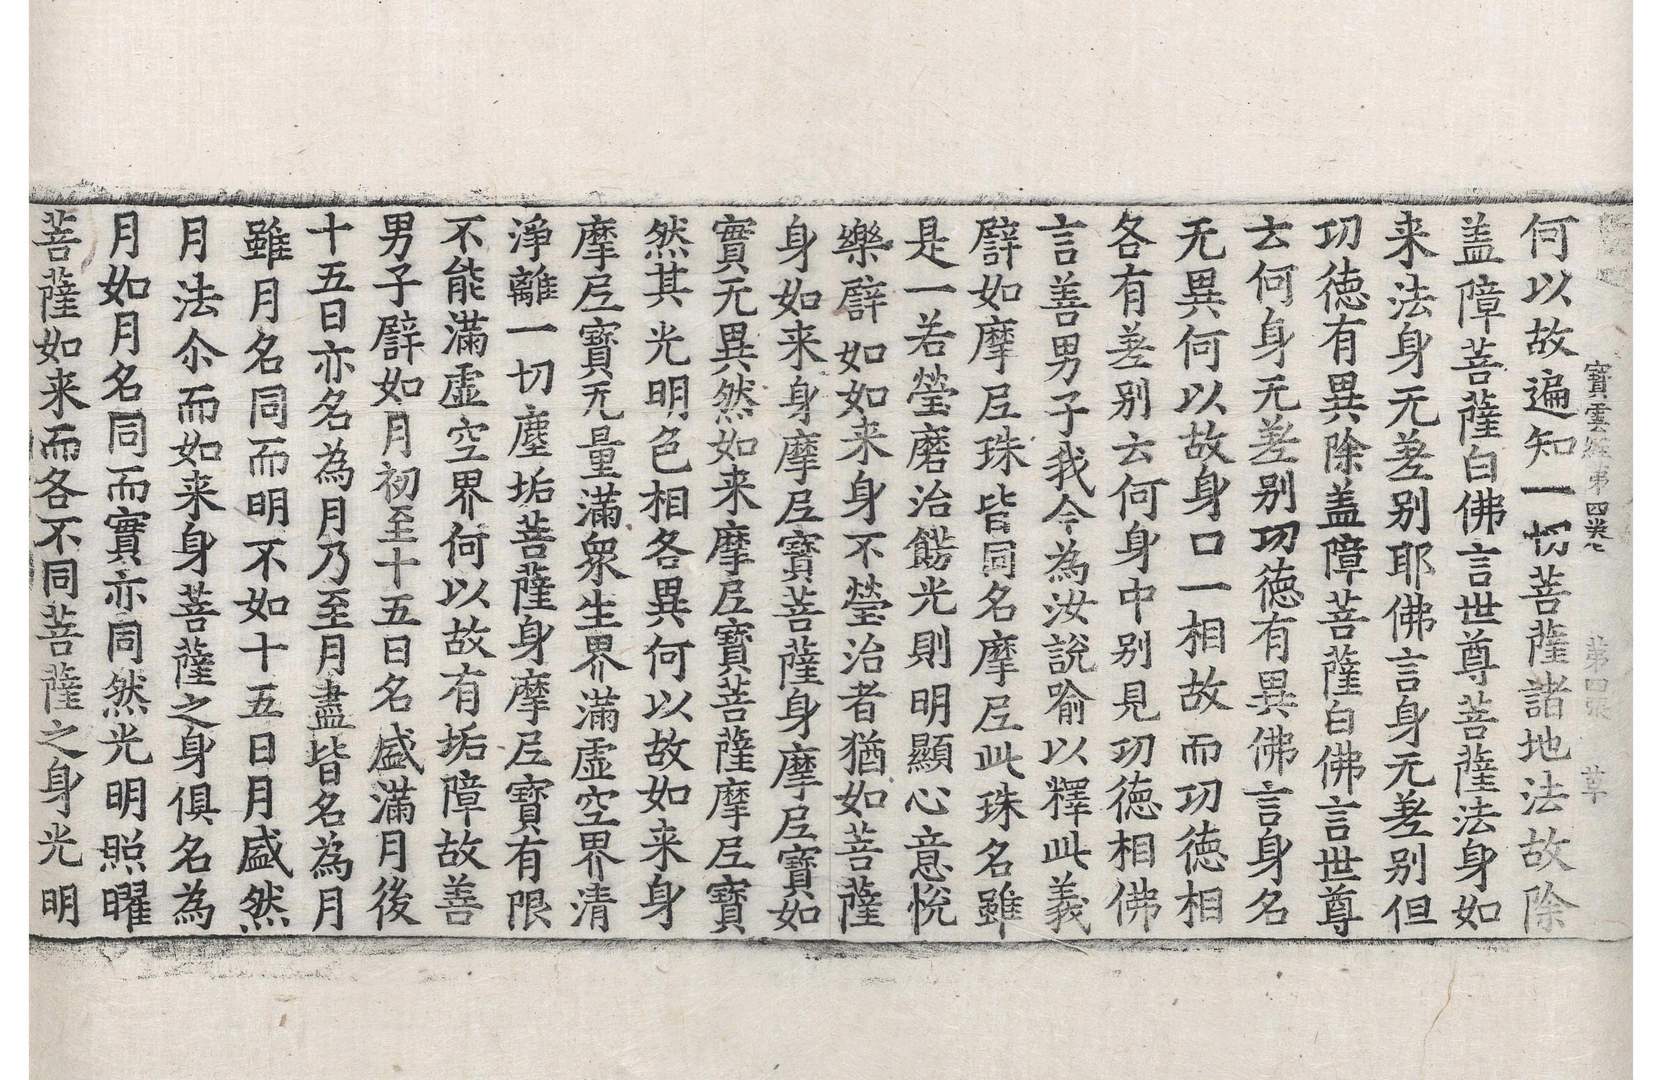 寶雲経第四卷 第四張 草
何以故遍知一切菩薩諸地法故除
盖障菩薩白佛言世尊菩薩法身如
来法身无差别耶佛言身无差别但
功徳有異除盖障菩薩白佛言世尊
云何身无差别功徳有異佛言身名
无異何以故身口一相故而功徳相
各有差别云何身中别見功徳相佛
言善男子我今為汝說喻以釋此義
譬如摩尼珠皆同名摩尼此珠名雖
是一若瑩磨治餝光則明顯心意悅
樂譬如如来身不瑩治者猶如菩薩
身如来身摩尼寶菩薩身摩尼寶如
實无異然如来摩尼寶菩薩摩尼寶
然其光明色相各異何以故如来身
摩尼寶无量滿衆生界滿虛空界清
淨離一切塵垢菩薩身摩尼寶有限
不能滿虛空界何以故有垢障故善
男子譬如月初至十五日名盛滿月後
十五日亦名為月乃至月盡皆名為月
雖月名同而明不如十五日月盛然
月法尒而如来身菩薩之身俱名為
月如月名同而實亦同然光明照曜
菩薩如来而各不同菩薩之身光明